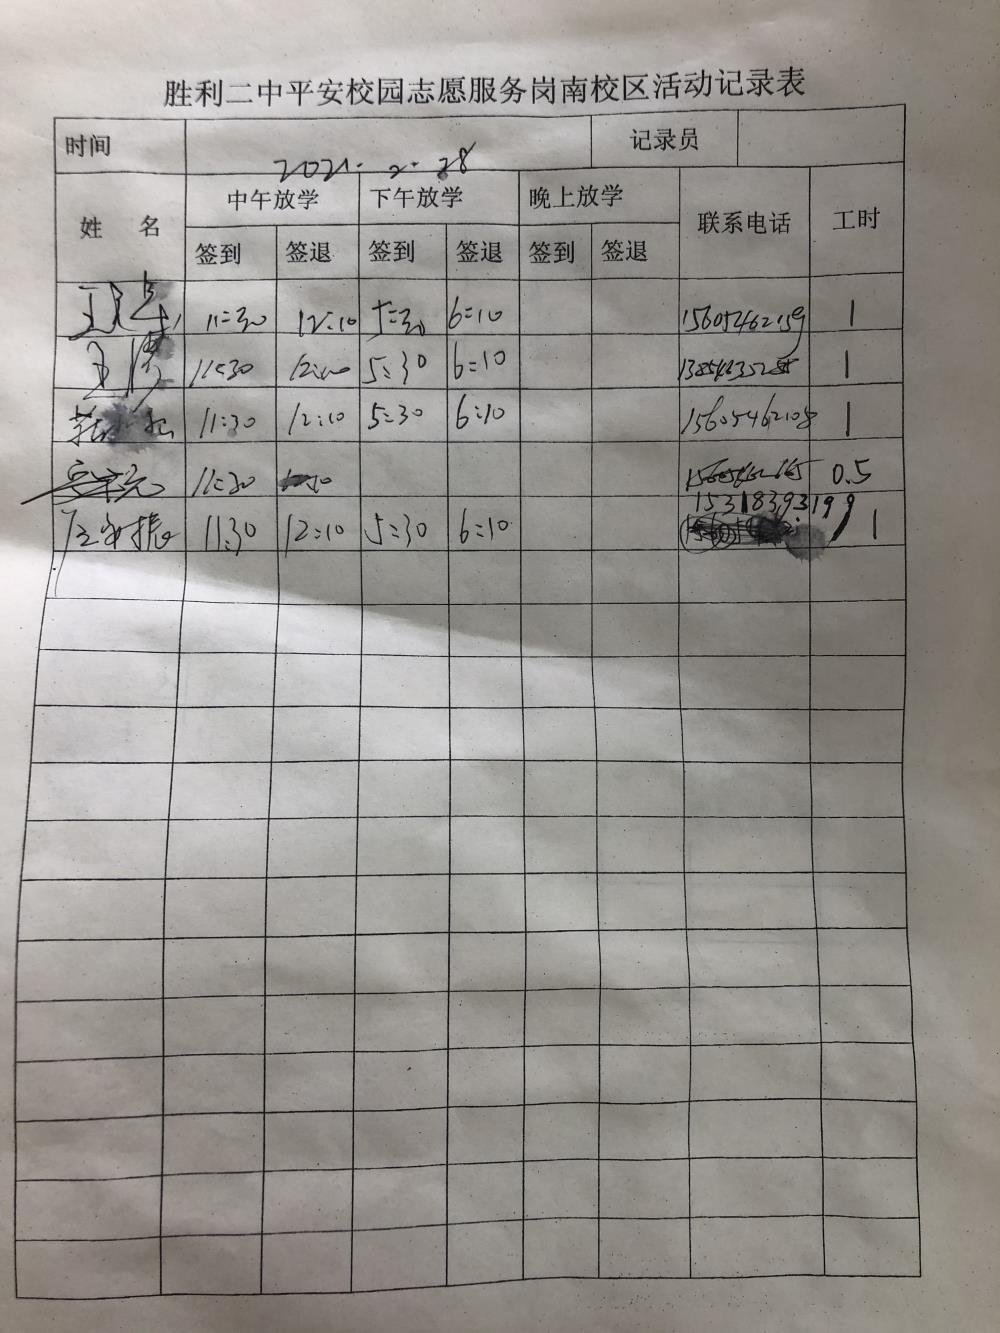 胜利二中平安校园志愿服务岗南校区活动记录表
时间 2021. 2. 28 记录员
姓 名 中午放学 下午放学 晚上放学 联系电话 工时
签到 签退 签到 签退 签到 签退
11:30 12:10 5:30 6:10 15605462159 1
王 11:30 12:10 5:30 6:10 1
11:30 12:10 5:30 6:10 15605462108 1
11:30 0.5
15318393199
11:30 12:10 5:30 6:10 1